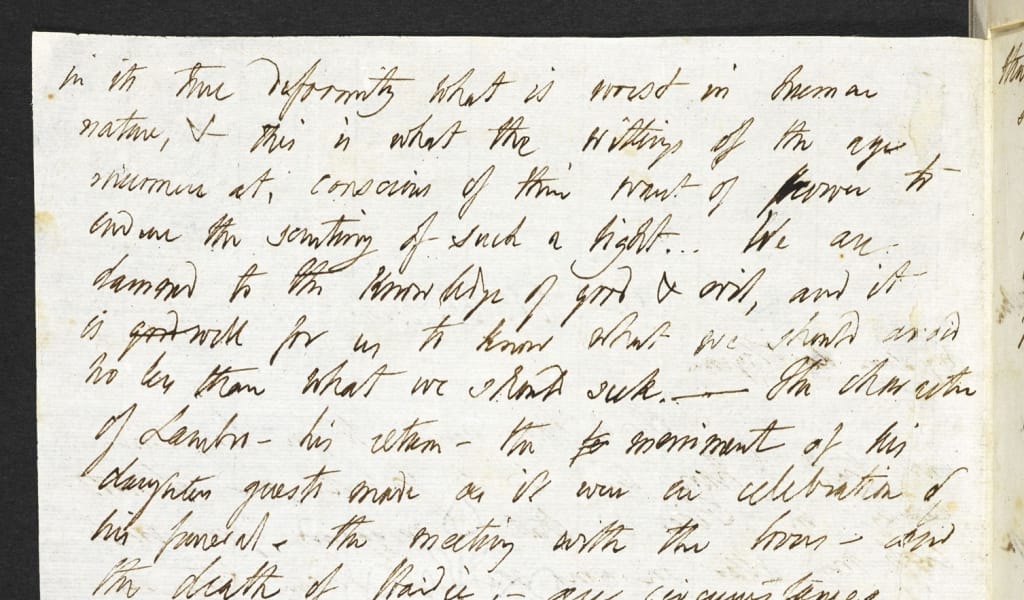 in its true deformity what is worst in human
nature, & this is what the writings of the age
murmur at, conscious of their want of power to
endure the scrutiny of such a light... We are
damned to the knowledge of good & evil, and it
is good well for us to know what we should avoid
no less than what we should seek.— The character
of Lambro – his return – the merriment of his
daughters guests made as it were in celebration of
his funeral – the meeting with the lovers – and
the death of Haidée, – are circumstances